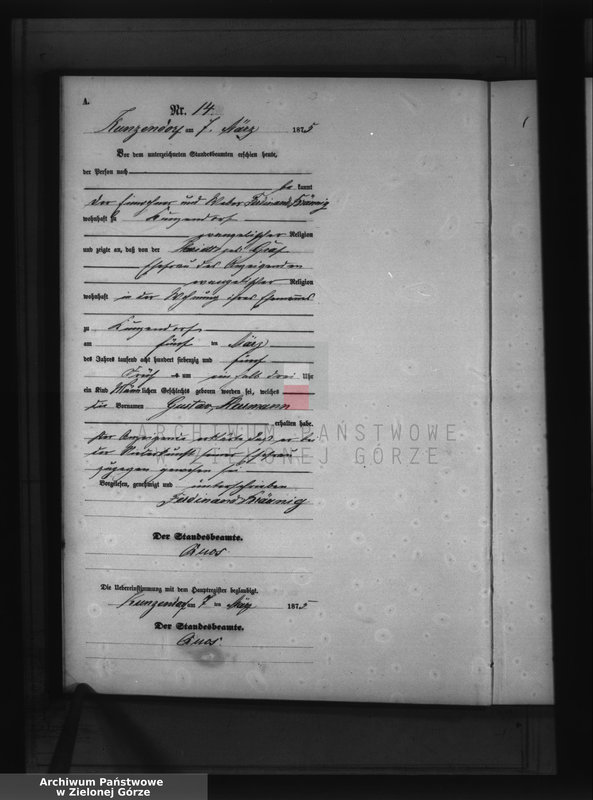 A.
Nr. 14.
Kunzendorf am 7. März 1875
Vor dem unterzeichneten Standesbeamten erschien heute,
der Person nach
be kannt
der Einwohner und Weber Ferdinand
wohnhaft zu Kunzendorf
evangelischer Religion
und zeigte an, daß von der geb.
Ehefrau des Anzeigenden
evangelischer Religion
wohnhaft in der Wohnung ihres Ehemannes
zu Kunzendorf
am fünf ten März
des Jahres tausend acht hundert siebenzig und fünf
Früh um ein halb drei Uhr
ein Kind Männlichen Geschlechts geboren worden sei, welches
die Vornamen Gustav Hermann
erhalten habe.
ARCHIWUM PAŃSTWOWE
Der Anzeigende erklärte daß er bei
der Niederkunft seiner Ehefrau
W ZIELONEJ GÓRZE
zugegen gewesen sei
Vorgelesen, genehmigt und unterschrieben
Ferdinand
Der Standesbeamte.
Die Uebereinstimmung mit dem Hauptregister beglaubigt.
Kunzendorf am 7 ten März 1875
Der Standesbeamte.
Archiwum Państwowe
w Zielonej Górze